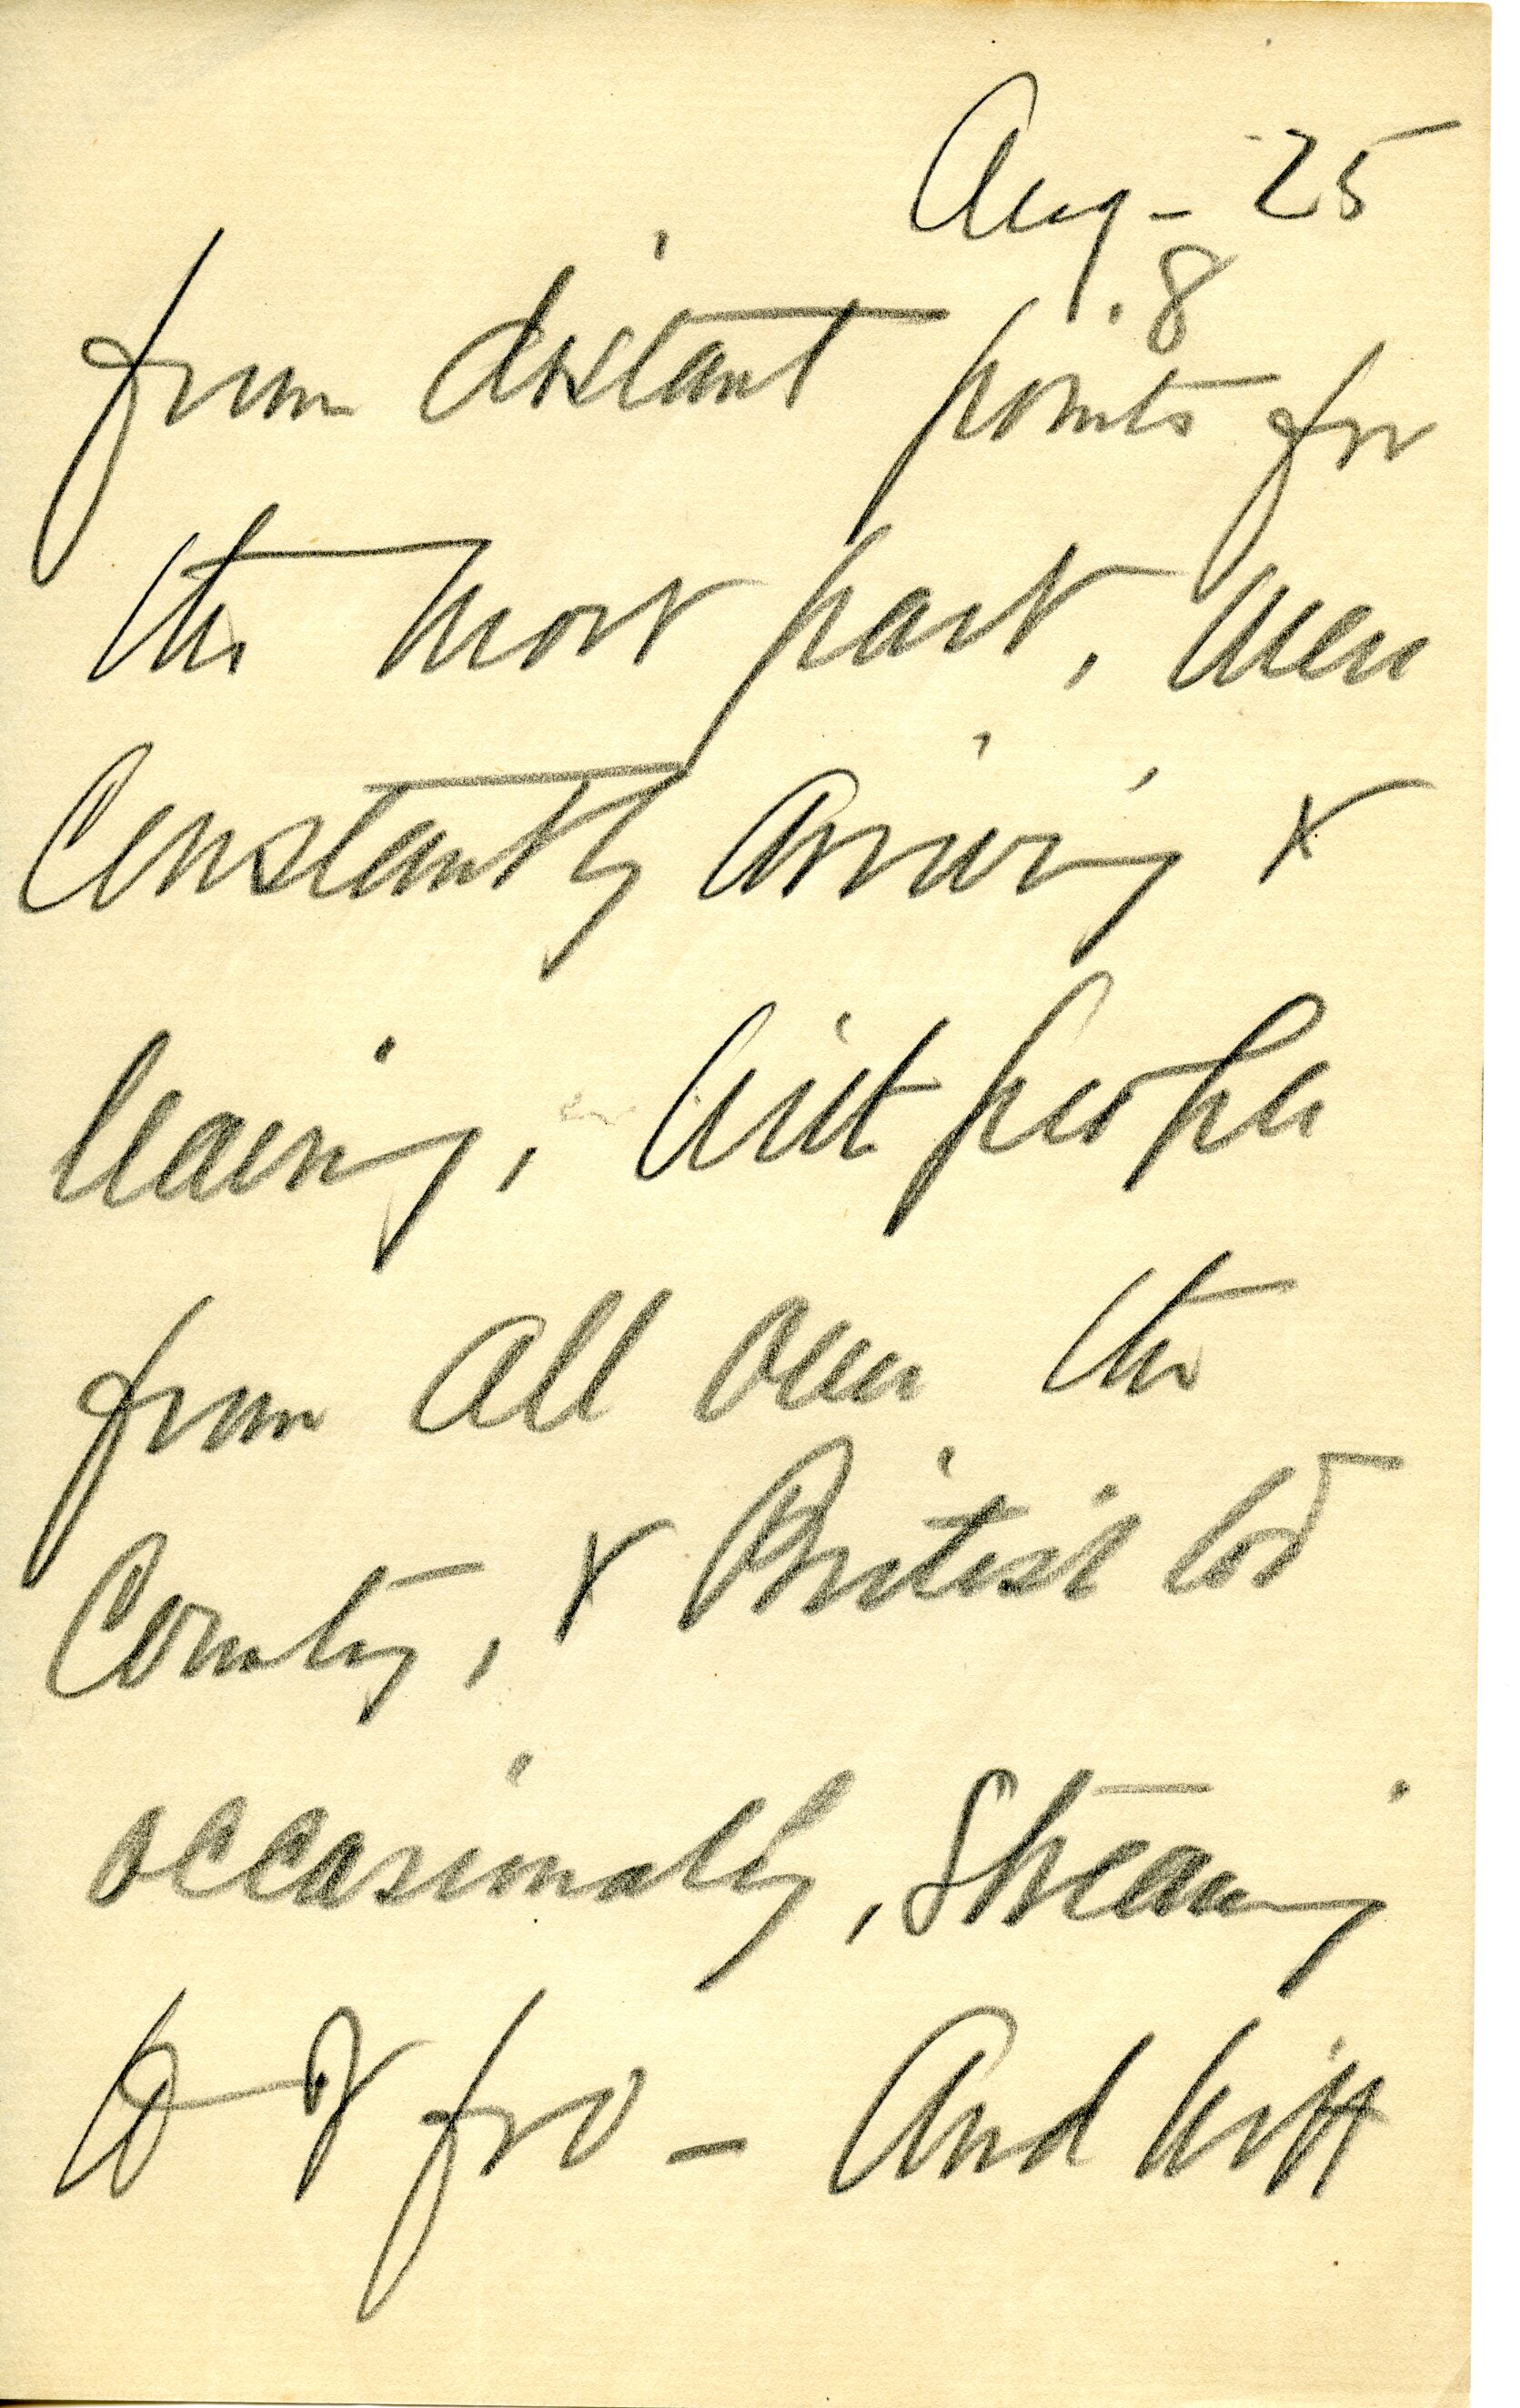 Aug - 25
.8
from distant points for
the most part, were
Constantly arriving &
leaving, with people
from all over the
County, & British too
occasionally, streaming
to & fro - And with